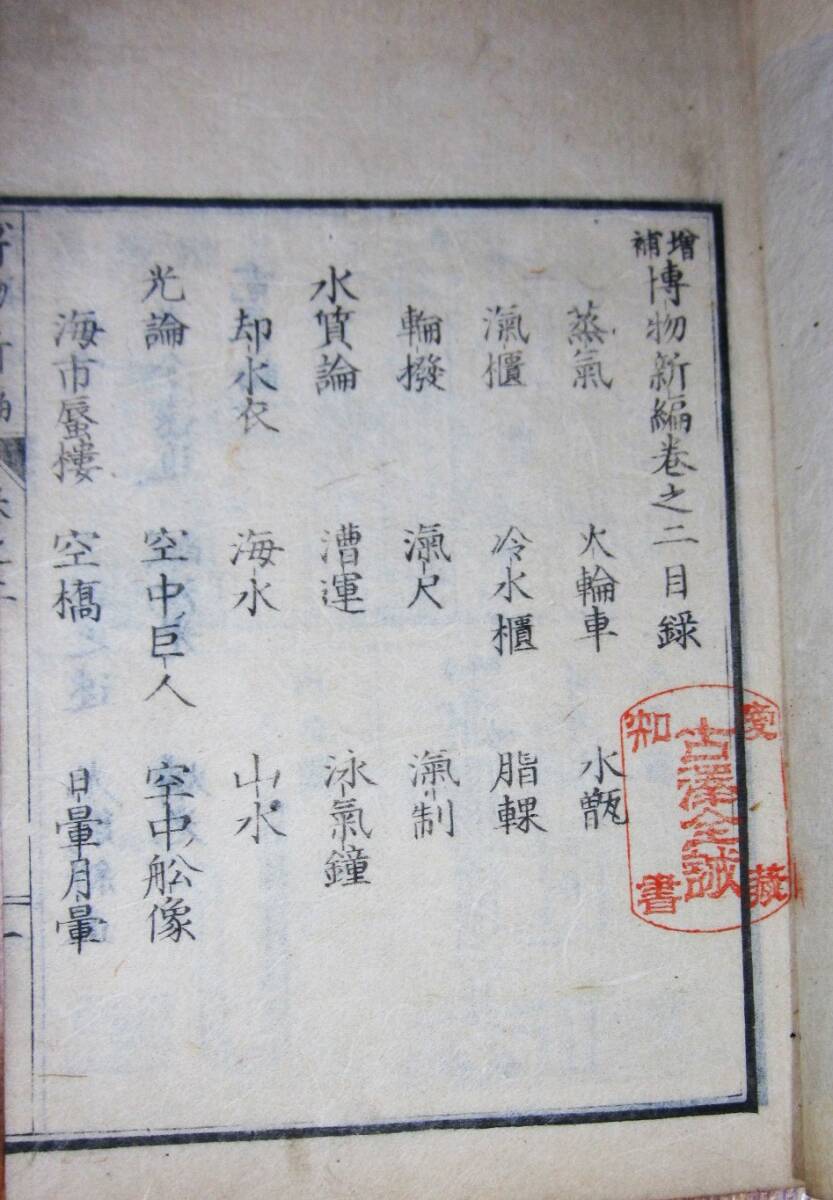 增補博物新編卷之二目錄
蒸氣 火輪車 水甑
滊櫃 冷水櫃 脂輠
輪撥 滊尺 滊制
水質論 漕運 泳氣鐘
却水衣 海水 山水
光論 空中巨人 空中舩像
海市蜃樓 空橋 日暈月暈
愛知
古澤全誠
藏書